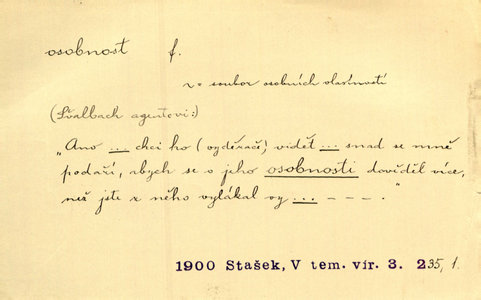 osobnost f.
v. soubor osobních vlastností
(Švalbach agentovi:)
„Ano ... chci ho (vyděrače) vidět ... snad se mně
podaří, abych se o jeho osobnosti dověděl více,
než jste z něho vylákal vy ... – – – .“
1900 Stašek, V tem. vír. 3. 235, 1.